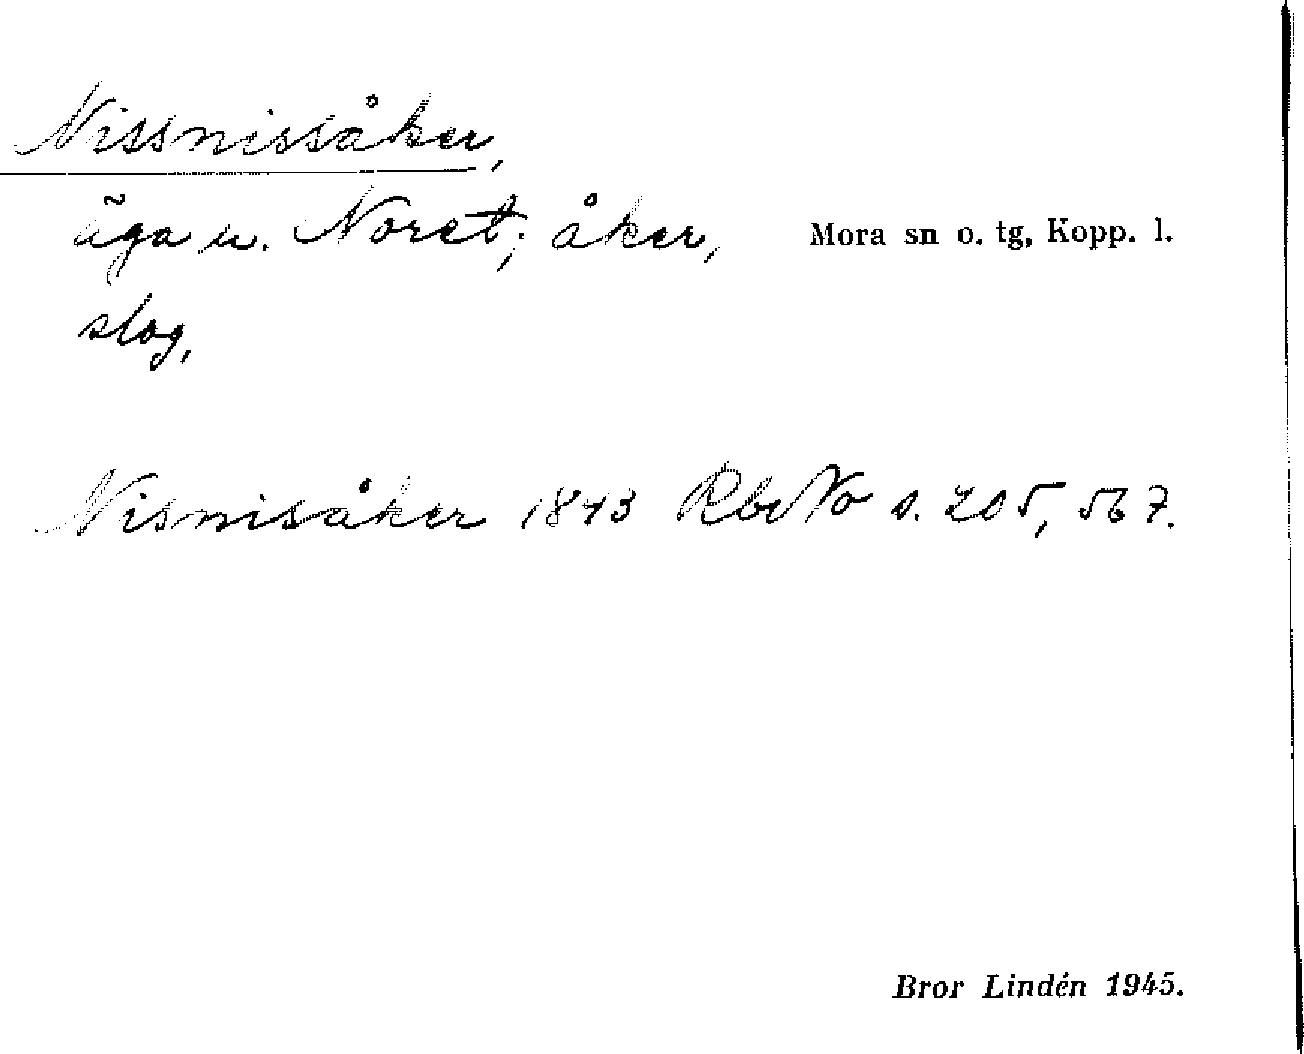 Nissnissåker,
äga u. Noret; åker, Mora sn o. tg, Kopp. l.
slog,
Nisnisåker 1843 RbvNo s. 205, 567.
Bror Lindén 1945.